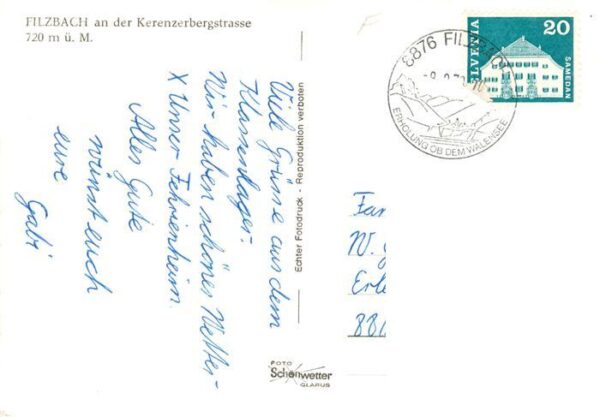 FILZBACH an der Kerenzerbergstrasse
720 m ü. M.
Viele Grüsse aus dem
Klassenlager.
Wir haben schönes Wetter.
X Unser Fehrienheim.
Alles Gute
wünst euch
eure Gabi
Echter Fotodruck - Reproduktion verboten
FOTO
Schönwetter
GLARUS
8876 FILZBACH
ERHOLUNG OB DEM WALENSEE
HELVETIA
20
SAMEDAN
Fam
W.
Erle
886